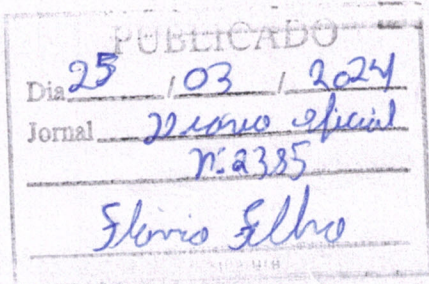 PUBLICADO
Dia 25 / 03 / 2024
Jornal Diário Oficial
Nº 2385
Flávio Filho